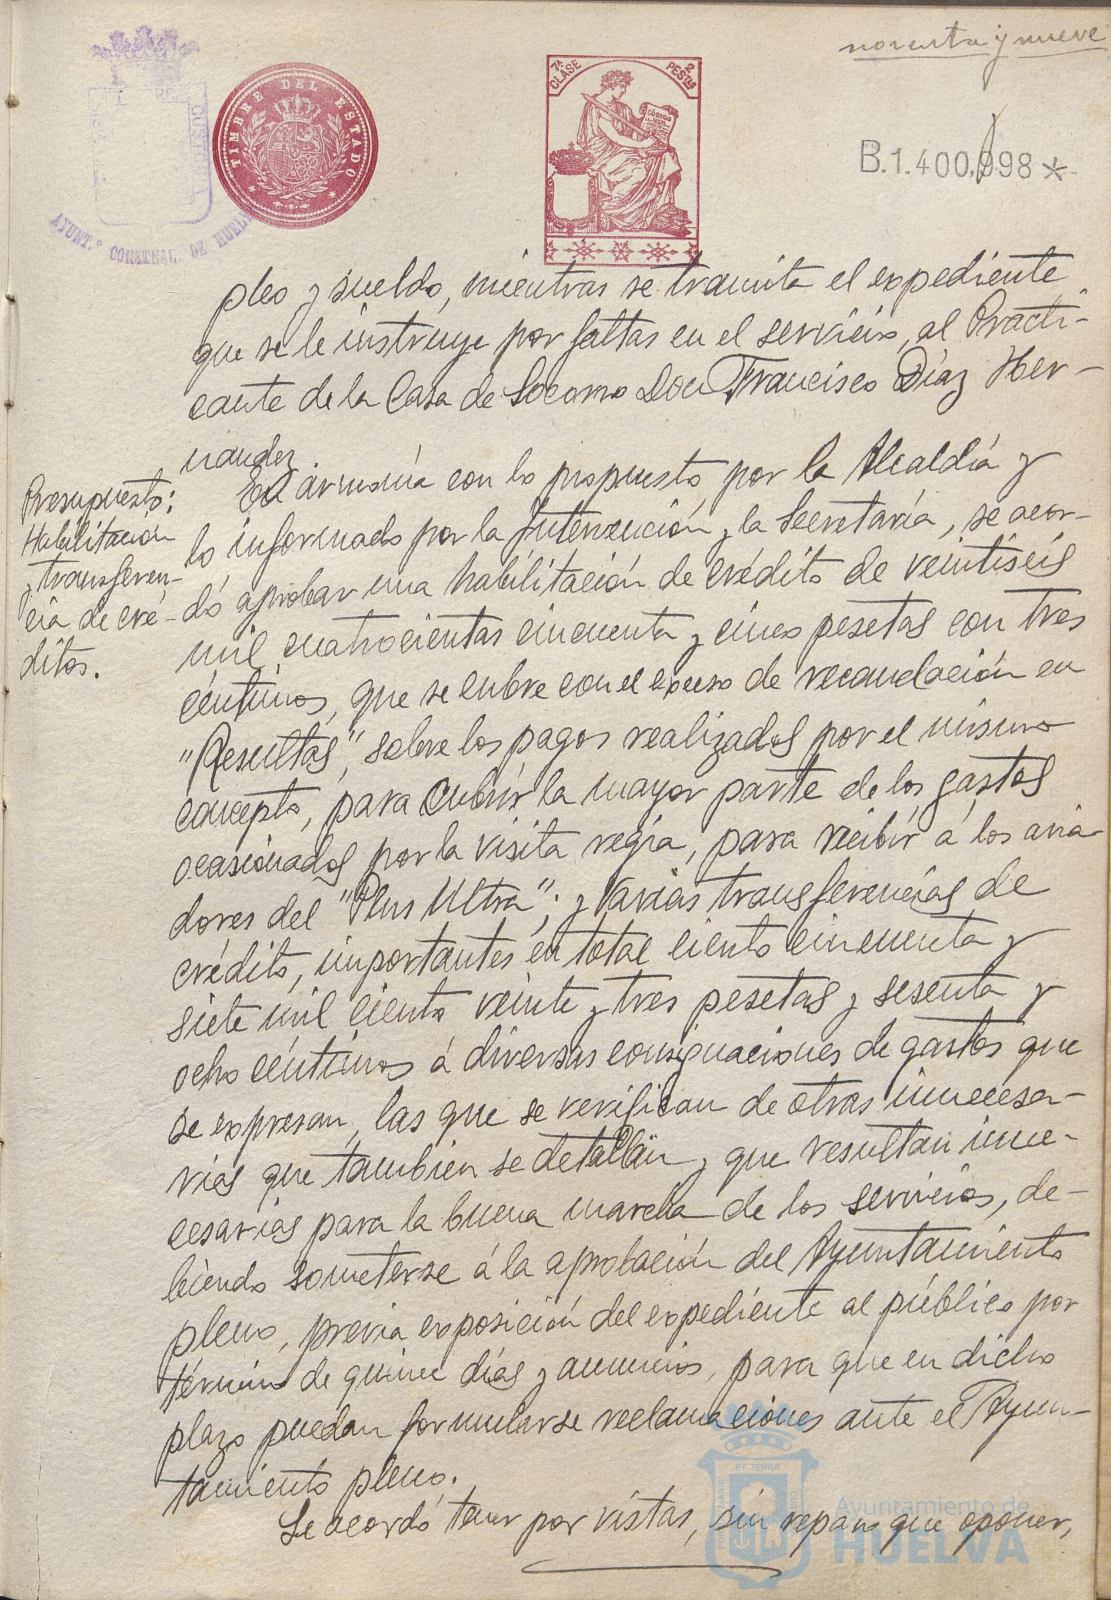 noventa y nueve
TIMBRE DEL ESTADO
7ª CLASE
2 PESTAS
CÓDIGO
B.1.400,998*
AYUNT.º CONSTNAL. DE HUELVA
pleo y sueldo, mientras se tramita el expediente
que se le instruye por faltas en el servicio, al Practi-
cante de la Casa de Socorro Don Francisco Díaz Her-
nández.
Presupuesto:
Habilitación
y transferen-
cia de cré-
ditos.
En armonía con lo propuesto por la Alcaldía y
lo informado por la Intervención y la Secretaría, se acor-
dó aprobar una habilitación de crédito de veintiseis
mil cuatrocientas cincuenta y cinco pesetas con tres
céntimos, que se cubre con el exceso de recaudación en
"Resultas", sobre los pagos realizados por el mismo
concepto, para cubrir la mayor parte de los gastos
ocasionados por la visita regia, para recibir á los avia-
dores del "Plus Ultra"; y varias transferencias de
crédito, importantes en total ciento cincuenta y
siete mil ciento veinte y tres pesetas y sesenta y
ocho céntimos á diversas consignaciones de gastos que
se expresan, las que se verifican de otras innecesa-
rias que también se detallan y que resultan inne-
cesarias para la buena marcha de los servicios, de-
biendo someterse á la aprobación del Ayuntamiento
pleno, previa exposición del expediente al público por
término de quince días y anuncios, para que en dicho
plazo puedan formularse reclamaciones ante el Ayun-
tamiento pleno.
Se acordó tener por vistas, sin reparos que oponer,
Ayuntamiento de
HUELVA